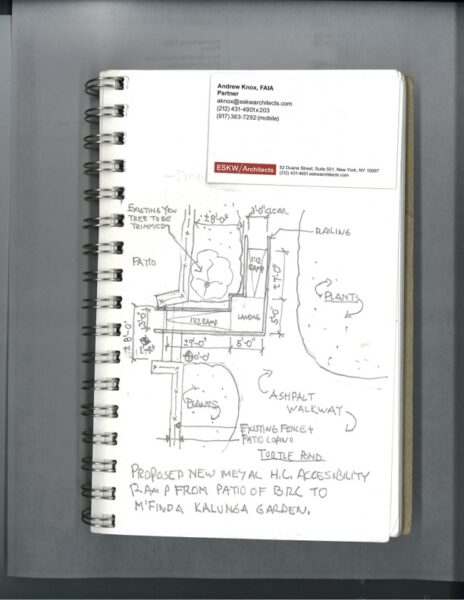 Andrew Knox, FAIA
Partner
aknox@eskwarchitects.com
(212) 431-4901x203
(917) 363-7292 (mobile)
ESKW/Architects
52 Duane Street, Suite 501, New York, NY 10007
(212) 431-4901 eskwarchitects.com
EXISTING YEW
TREE TO BE
TRIMMED
±8'-0"
3'-0" CLEAR
RAILING
1:12
RAMP
±7'-0"
PATIO
PLANTS
5'-0"
LANDING
1:12 RAMP
3'-0"
±8'-0"
±9'-0"
5'-0"
PLANTS
ASHPALT
WALKWAY
EXISTING FENCE +
PATIO
TURTLE POND
PROPOSED NEW METAL H.C. ACCESIBILITY
RAMP FROM PATIO OF BRC TO
M'FINDA KALUNGA GARDEN.